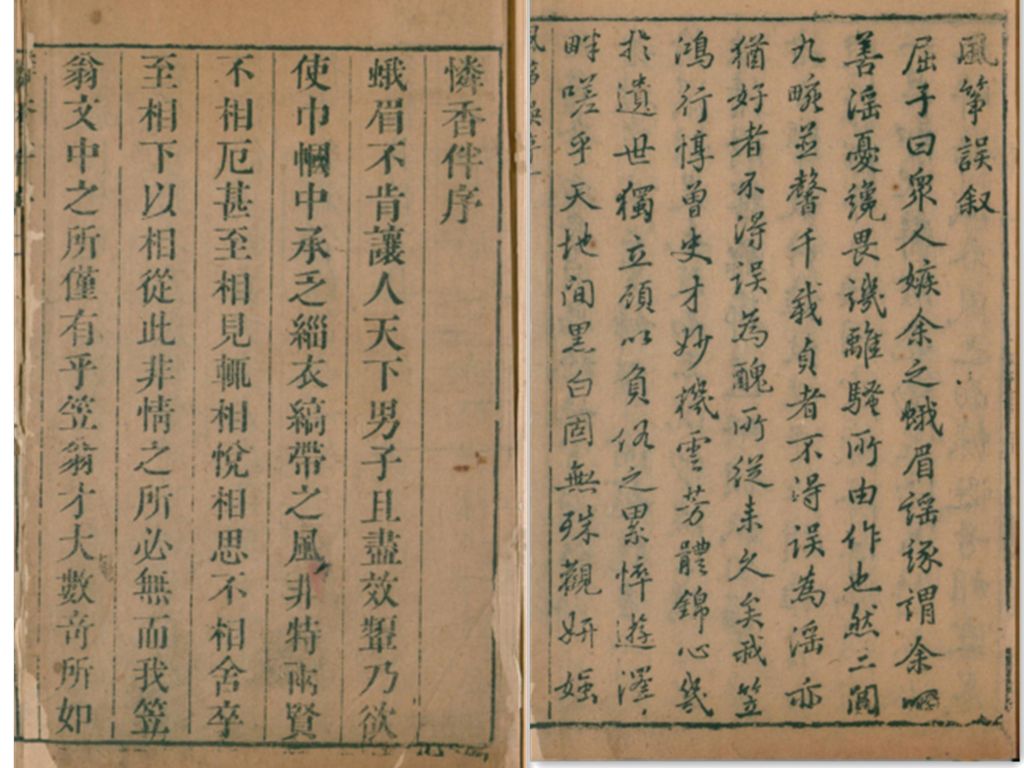 憐香伴序
蛾眉不肯讓人天下男子且盡效顰乃欲
使巾幗中承乏緇衣縞帶之風非特兩賢
不相厄甚至相見輒相悅相思不相舍卒
至相下以相從此非情之所必無而我笠
翁文中之所僅有乎笠翁才大數奇所如
風箏誤叙
屈子曰衆人嫉余之蛾眉謠諑謂余
善淫憂讒畏譏離騷所由作也然二
九畹並馨千載貞者不得誤為淫亦
猶好者不得誤為醜所從来久矣我笠
鴻行惇曾史才妙機雲芳體錦心幾
於遺世獨立顧以負俗之累悴遊澤
畔嗟乎天地間黑白固無殊觀妍媸